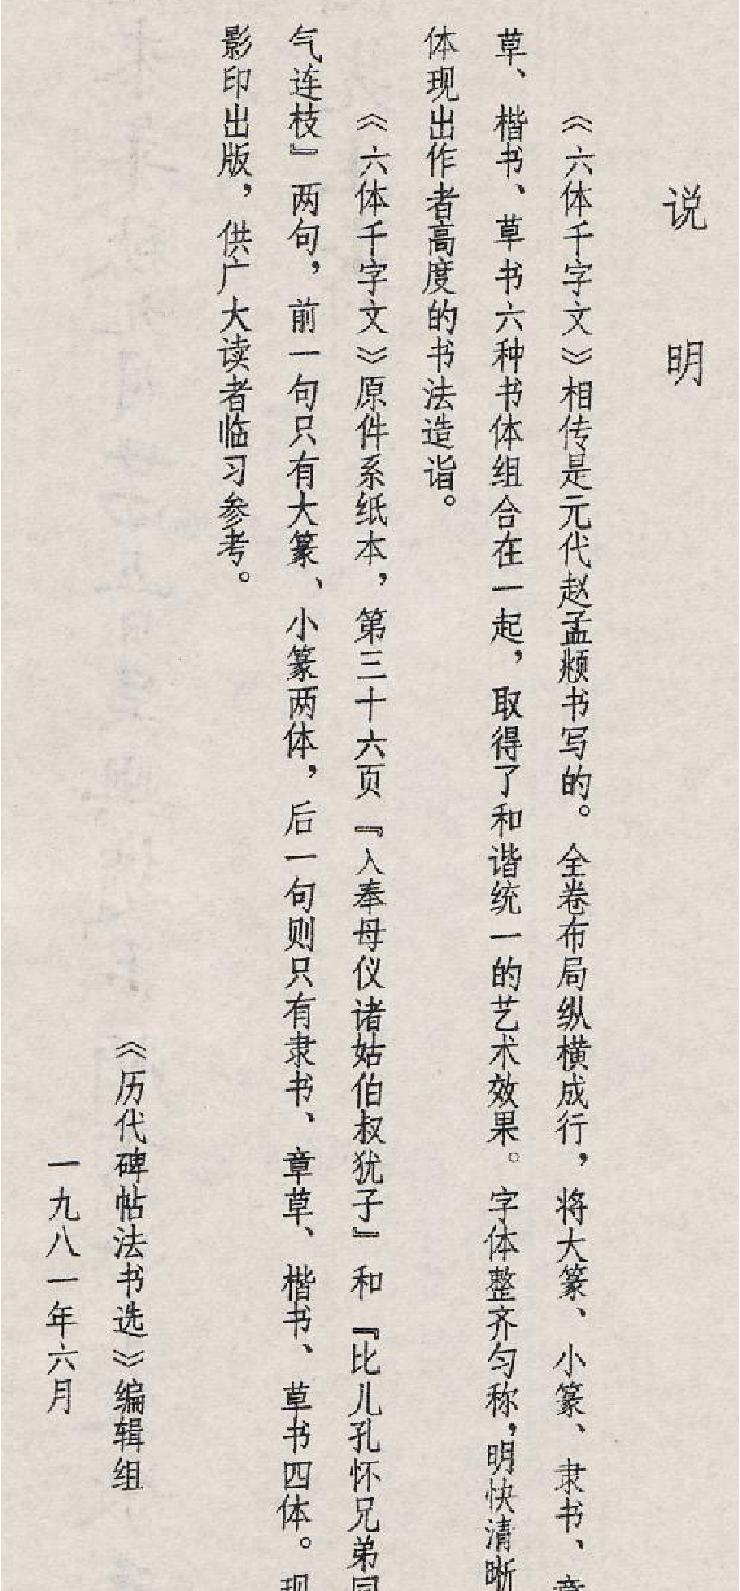 说 明
《六体千字文》相传是元代赵孟頫书写的。全卷布局纵横成行，将大篆、小篆、隶书、章
草、楷书、草书六种书体组合在一起，取得了和谐统一的艺术效果。字体整齐匀称，明快清晰
体现出作者高度的书法造诣。
《六体千字文》原件系纸本，第三十六页『入奉母仪诸姑伯叔犹子』和『比儿孔怀兄弟同
气连枝』两句，前一句只有大篆、小篆两体，后一句则只有隶书、章草、楷书、草书四体。现
影印出版，供广大读者临习参考。
《历代碑帖法书选》编辑组
一九八一年六月